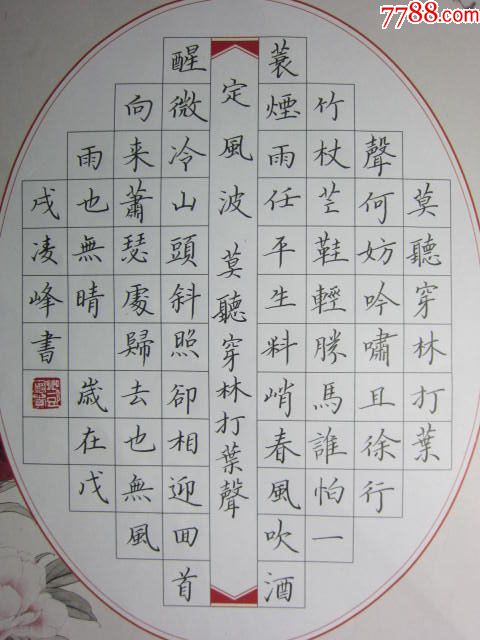 7788.com
定風波 莫聽穿林打葉聲
莫聽穿林打葉
聲何妨吟嘯且徐行
竹杖芒鞋輕勝馬誰怕一
蓑煙雨任平生料峭春風吹酒
醒微冷山頭斜照卻相迎回首
向来蕭瑟處歸去也無風
雨也無晴 歲在戊
戌凌峰書